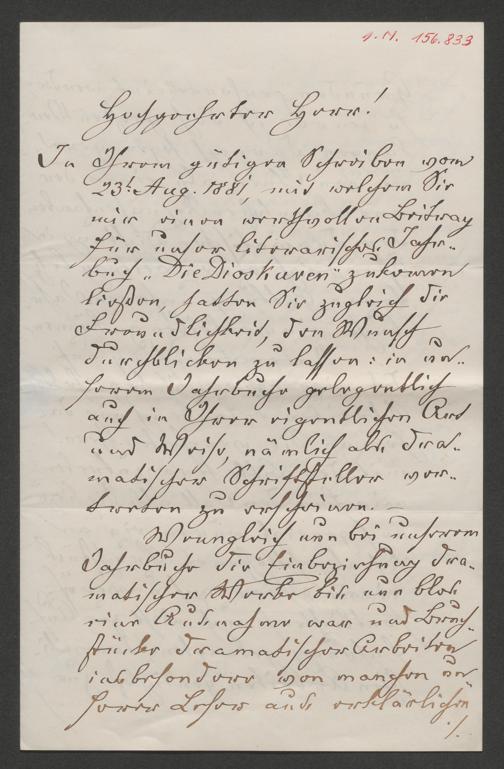 J.N. 156.833
Hochgeehrter Herr!
In Ihrem gütigen Schreiben vom
23t. Aug. 1881, mit welchem Sie
mir einen werthvollen Beitrag
für unser literarisches Jahr-
buch „Die Dioskuren" zukommen
ließen, hatten Sie zugleich die
Freundlichkeit, den Wunsch
durchblicken zu lassen: in un-
serem Jahrbuche gelegentlich
auch in Ihrer eigentlichen Art
und Weise, nämlich als dra-
matischer Schriftsteller ver-
treten zu erscheinen. —
Wenngleich nun bei unserem
Jahrbuche die Einbeziehung dra-
matischer Werke bis nun blos
eine Ausnahme war und Bruch-
stücke dramatischer Arbeiten
insbesondere von manchen un
serer Leser aus erklärlichen
./.